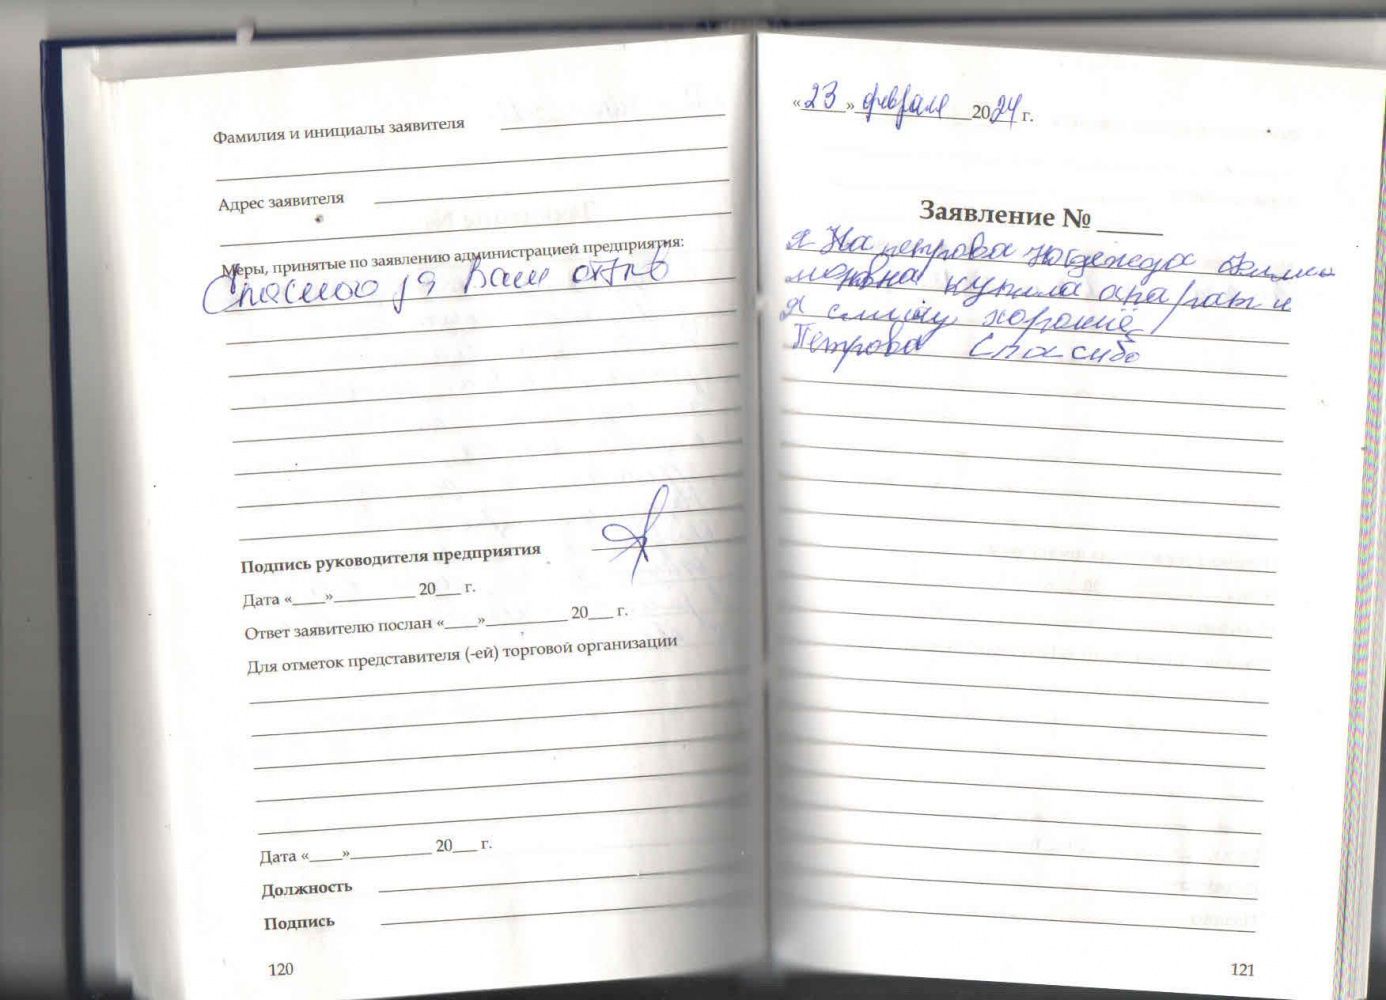 Фамилия и инициалы заявителя
Адрес заявителя
Меры, принятые по заявлению администрацией предприятия:
Спасибо за Ваш отзыв
Подпись руководителя предприятия
Дата «____»__________ 20___ г.
Ответ заявителю послан «____»__________ 20___ г.
Для отметок представителя (-ей) торговой организации
Дата «____»__________ 20___ г.
Должность
Подпись
120
«23» февраля 2024 г.
Заявление № _____
Я петрова Надежда
купила апарат и
я слышу хорошё
Петрова Спасибо
121